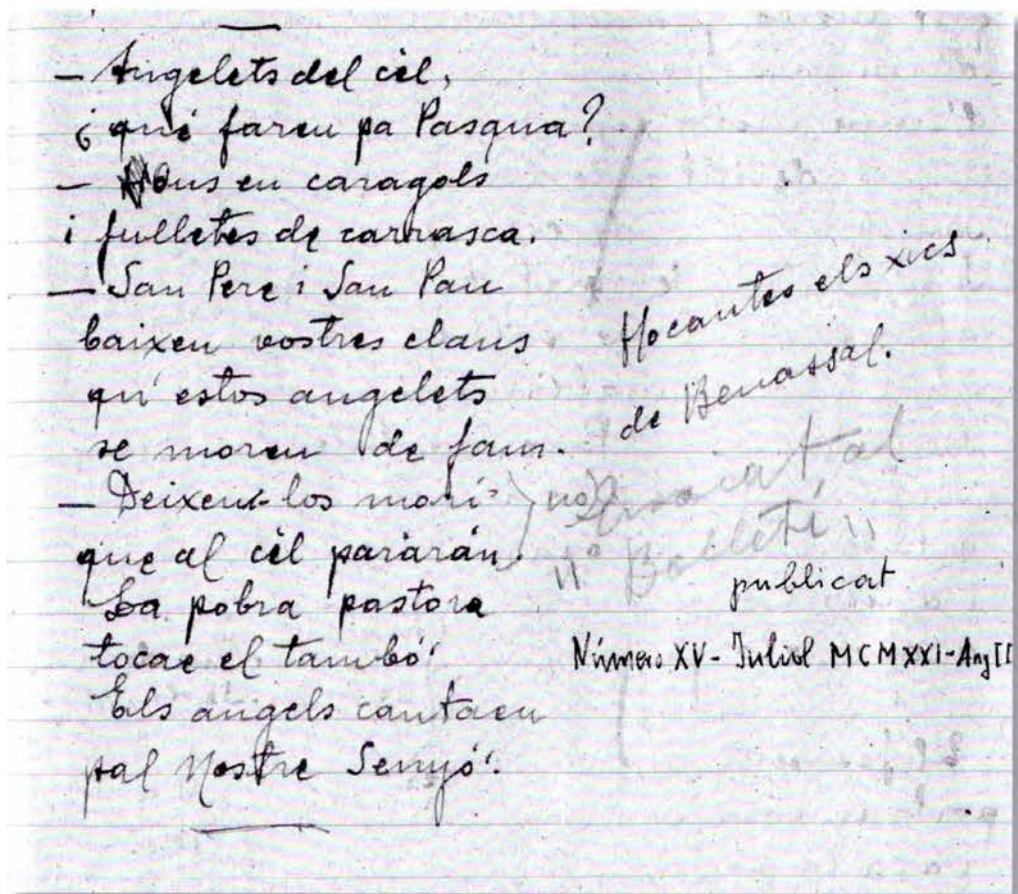 — Angelets del cèl,
¿qué fareu pa Pasqua?
— Ous en caragols
i fulletes de carrasca.
— San Pere i San Pau
baixeu vostres claus
qu'estos angelets
se moren de fam.
— Deixeu-los morí
que al cèl pararán.
La pobra pastora
tocae el tambó
Els angels cantaen
pal Nostre Senyó.
Ho canten els xics
de Benassal.
no
al
Bolletí
publicat
Número XV - Juliol MCMXXI - Any II